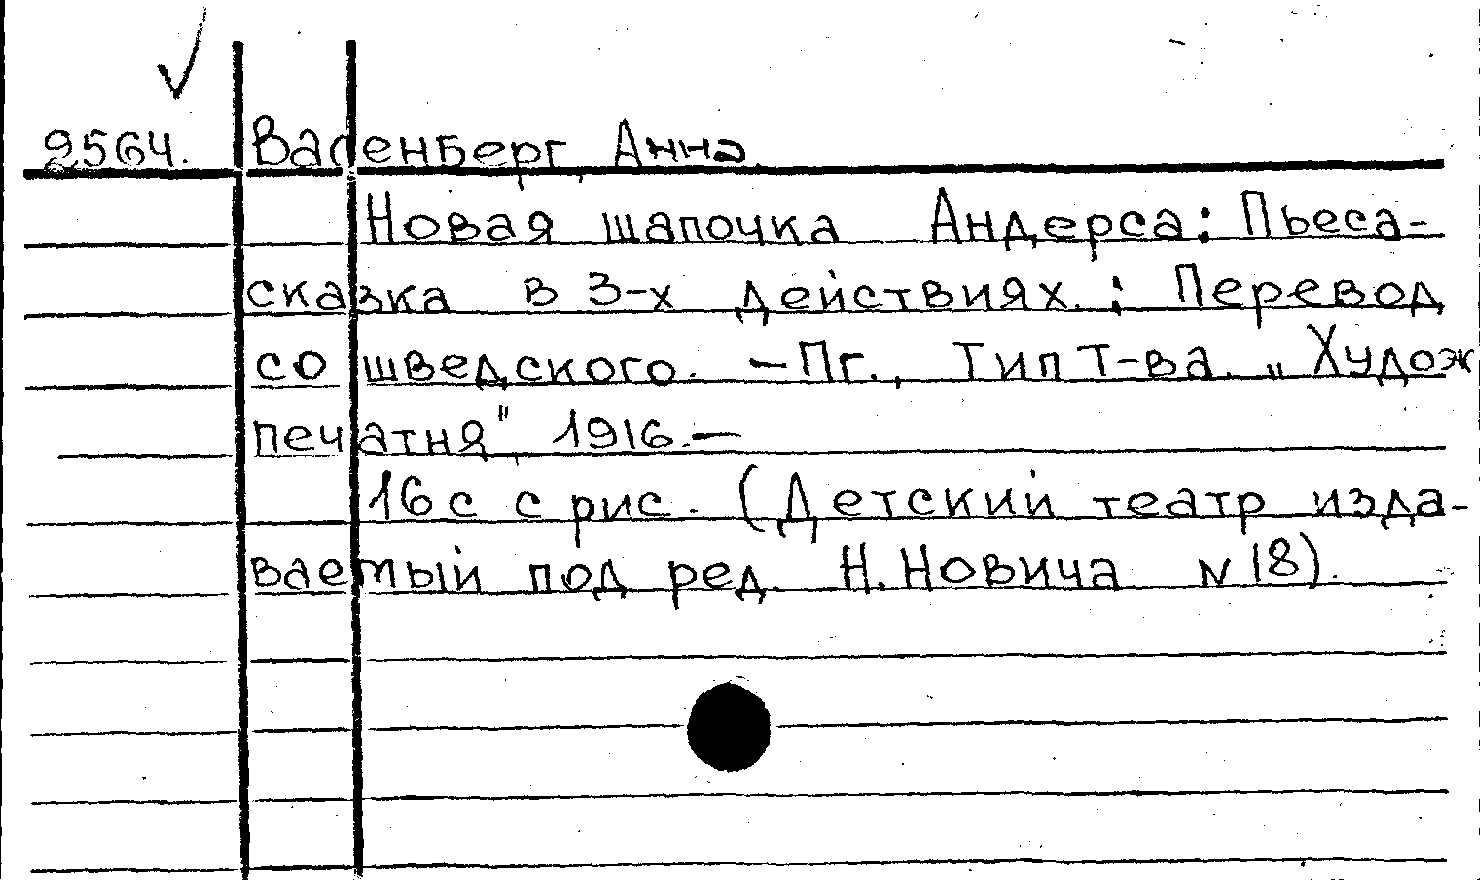 2564. Ваденберг, Анна.
Новая шапочка Андерса: Пьеса-
сказка в 3-х действиях. ; Перевод
со шведского. – Пг., Тип Т-ва. „Худож
печатня", 1916. –
16 с с рис. (Детский театр изда-
ваемый под ред. Н. Новича N 18).